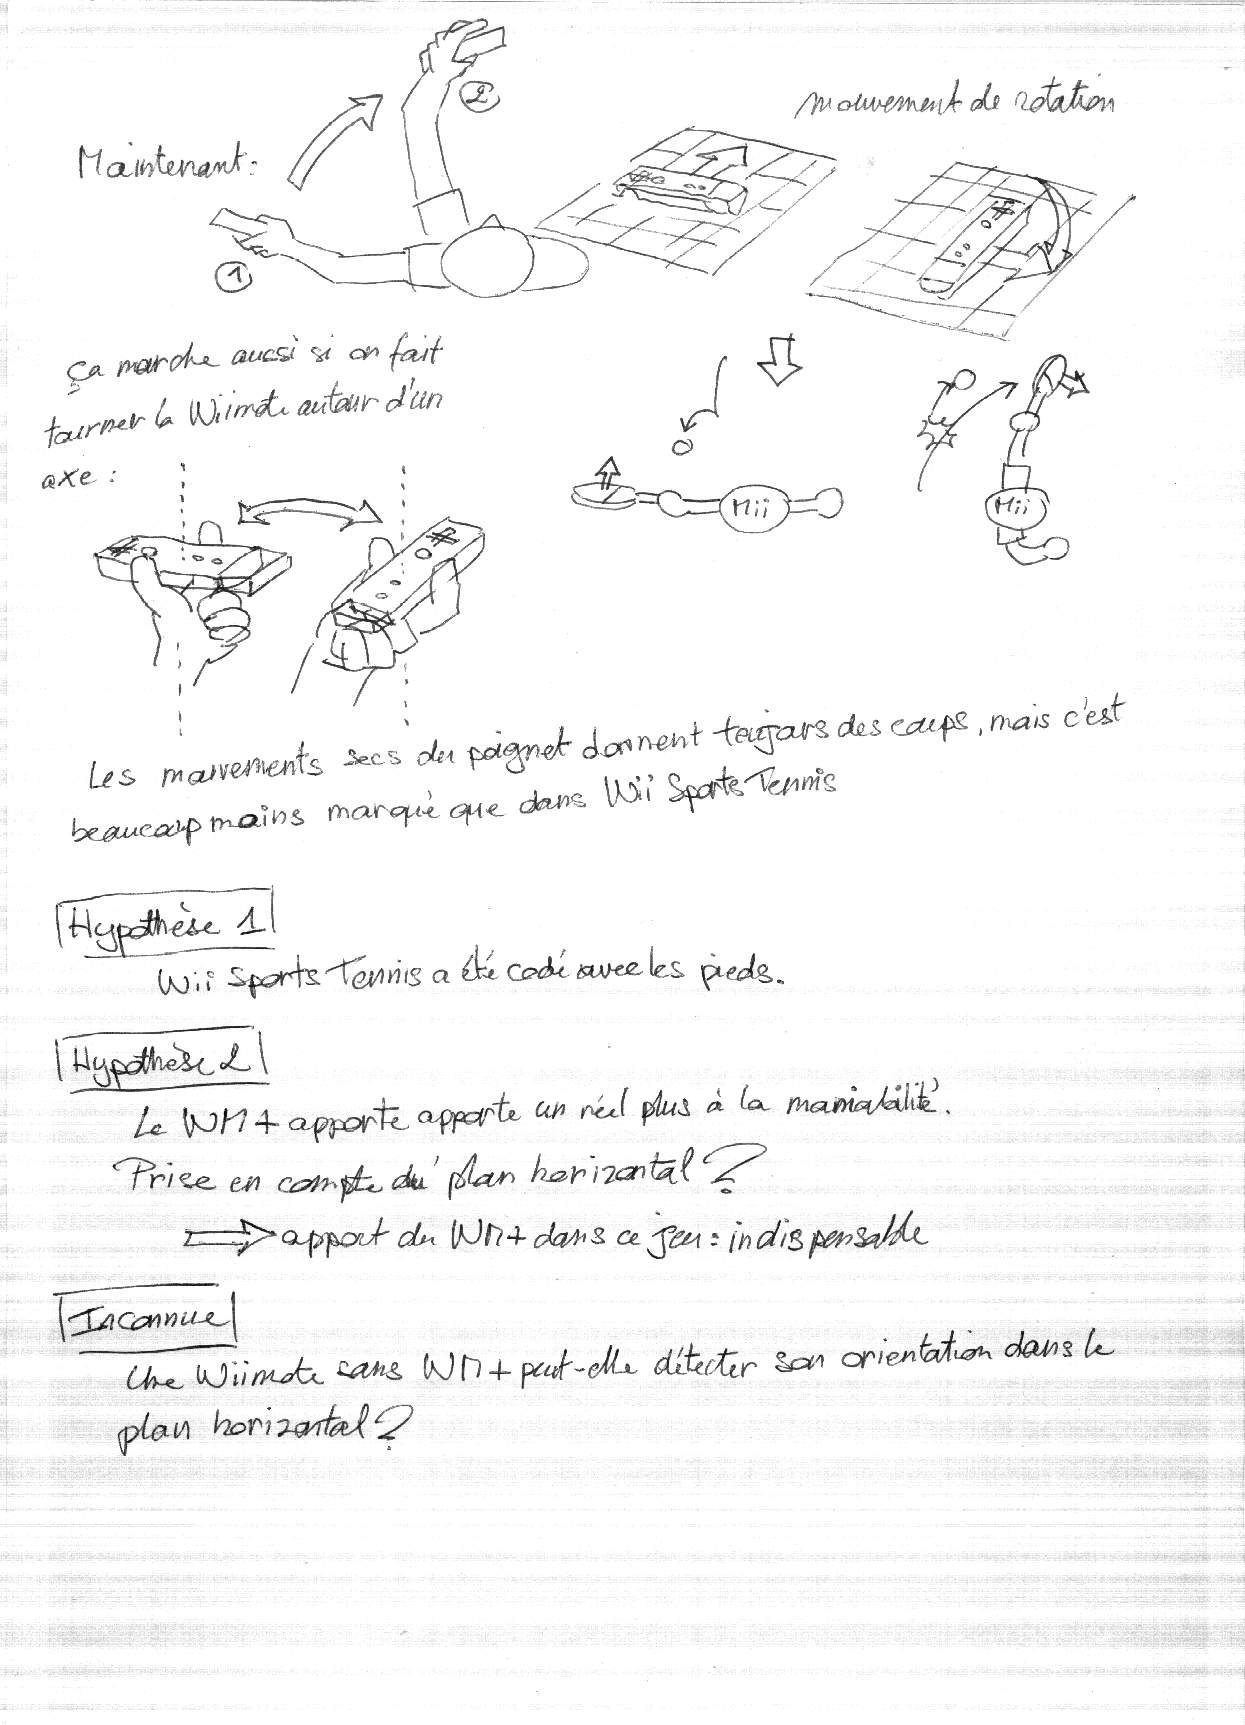 mouvement de rotation
Maintenant:
2
1
ça marche aussi si on fait
tourner la Wiimote autour d'un
axe :
Mii
Mii
Les mouvements secs du poignet donnent toujours des coups, mais c'est
beaucoup moins marqué que dans Wii Sports Tennis
Hypothèse 1
Wii Sports Tennis a été codé avec les pieds.
Hypothèse 2
Le WM+ apporte apporte un réel plus à la maniabilité.
Prise en compte du plan horizontal ?
⇒ apport du WM+ dans ce jeu : indispensable
Inconnue
Une Wiimote sans WM+ peut-elle détecter son orientation dans le
plan horizontal ?